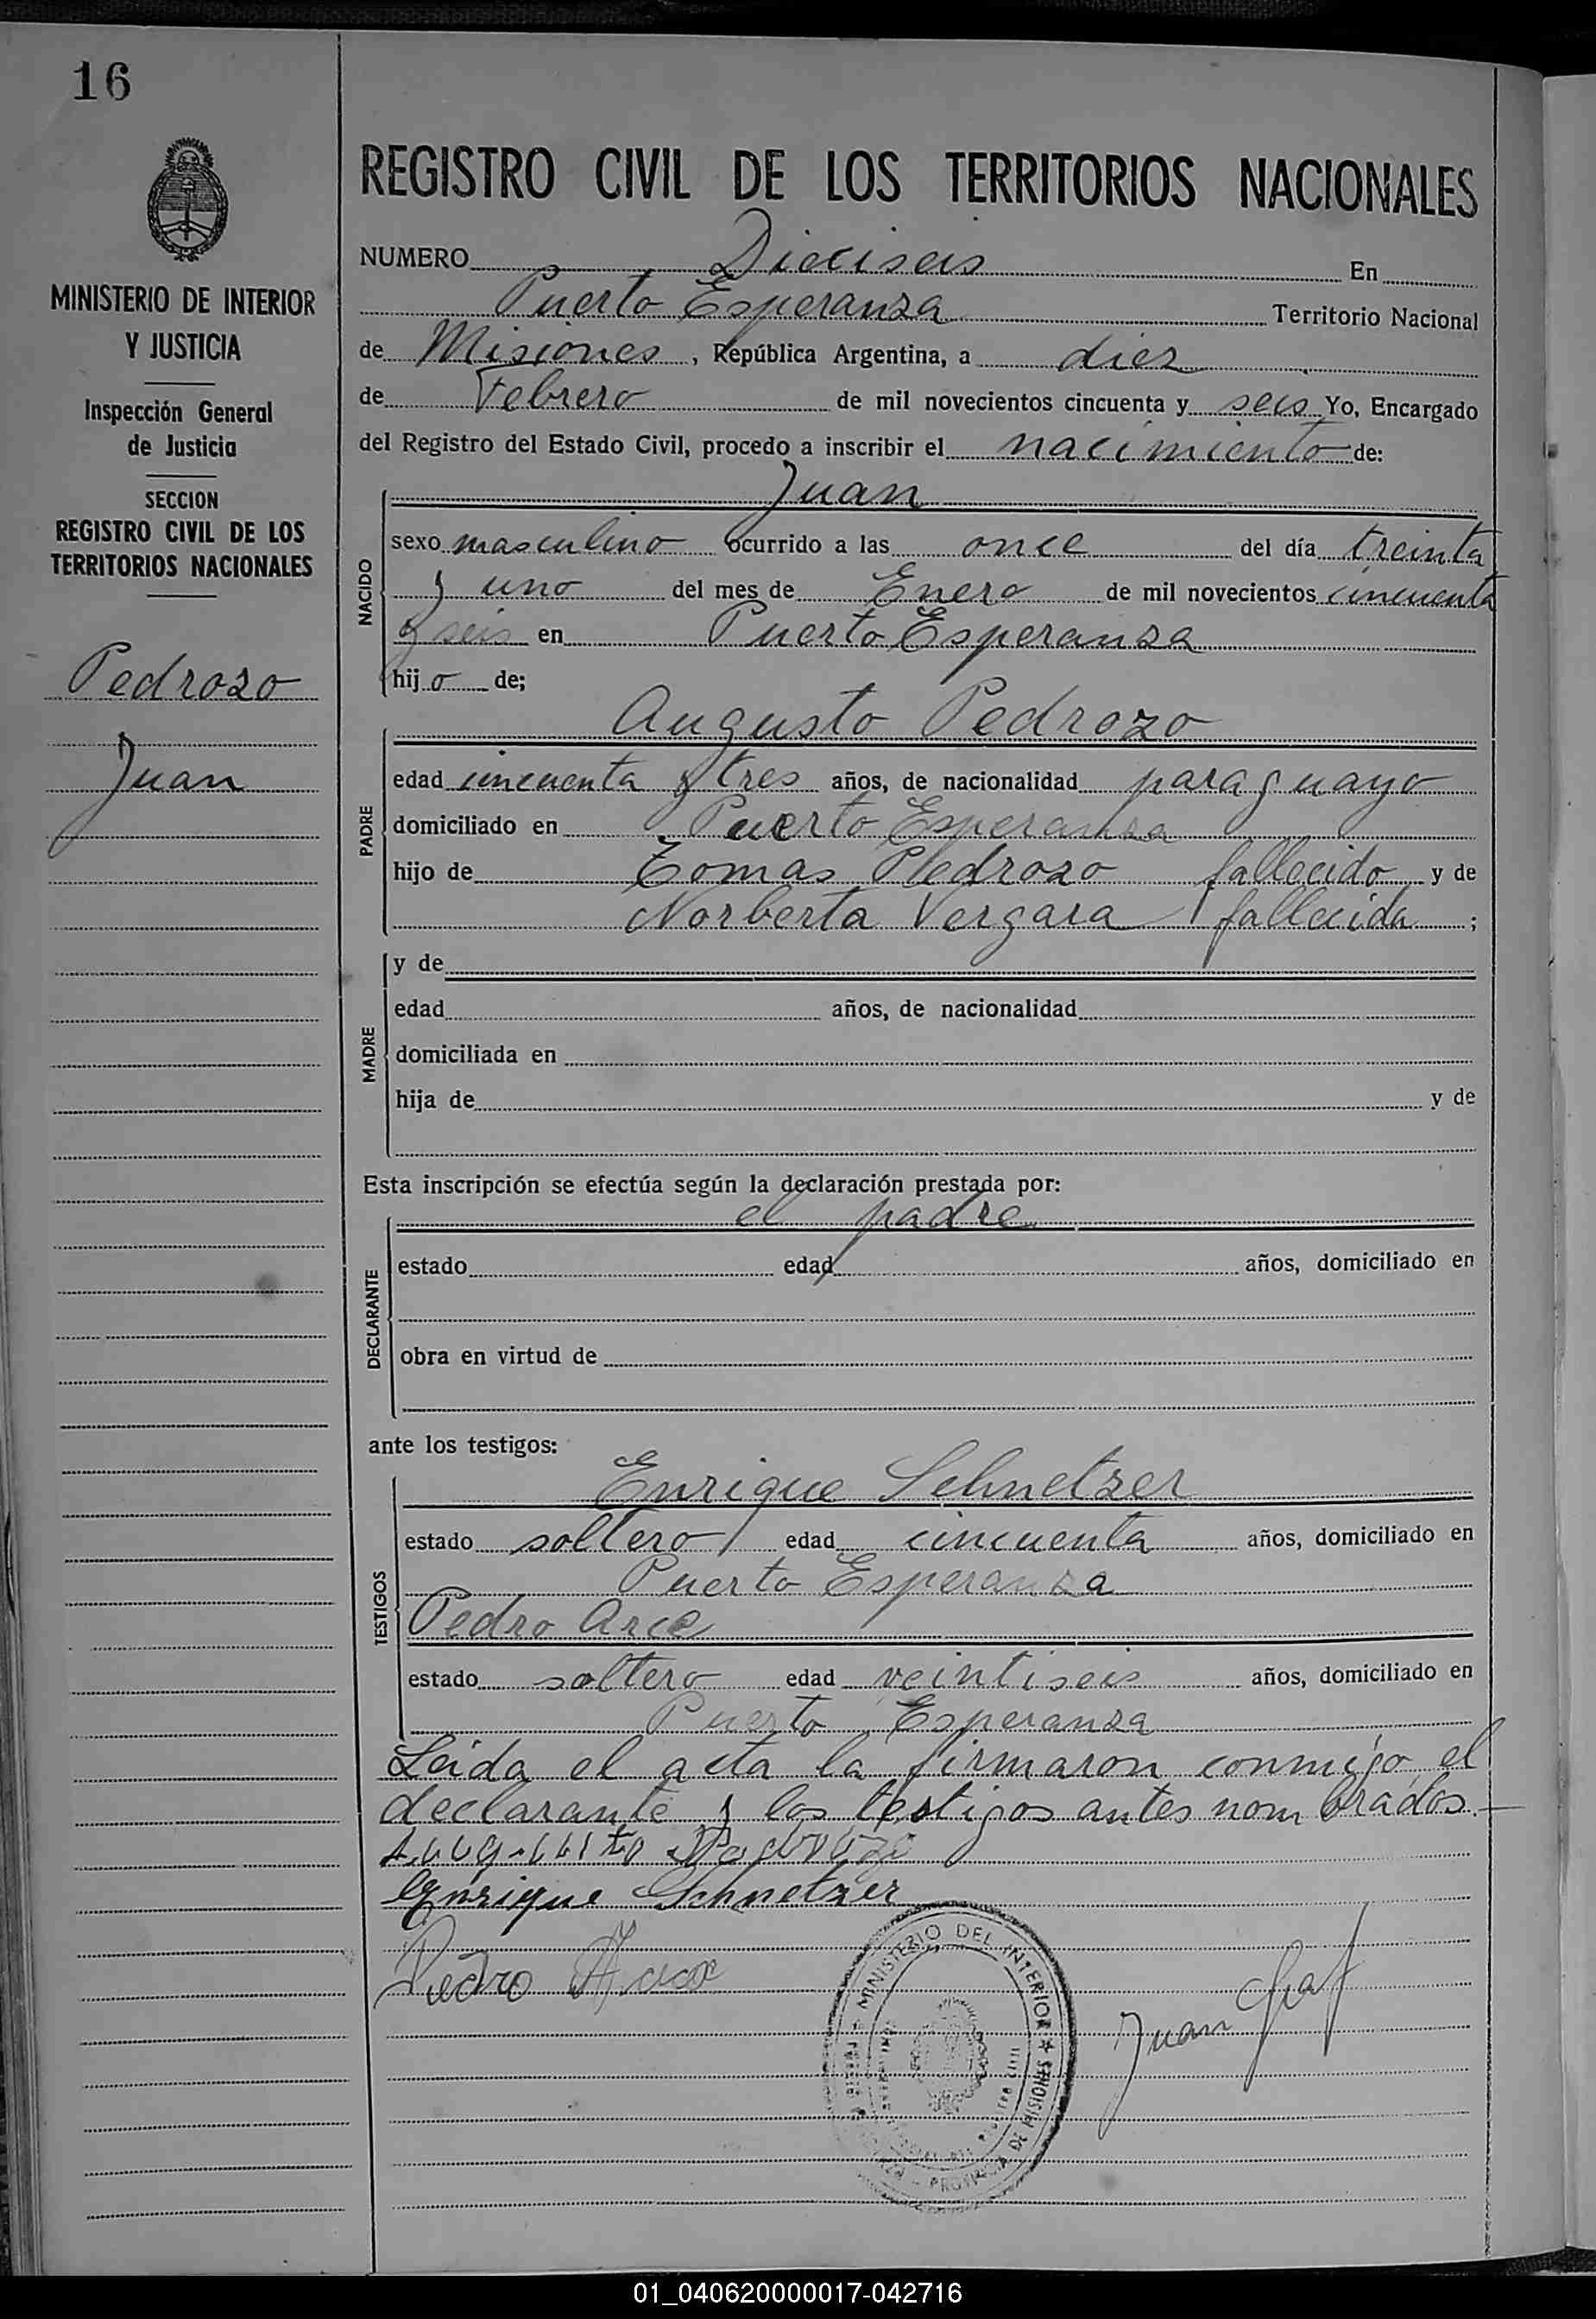 16
MINISTERIO DE INTERIOR
Y JUSTICIA
Inspección General
de Justicia
SECCION
REGISTRO CIVIL DE LOS
TERRITORIOS NACIONALES
Pedrozo
Juan
REGISTRO CIVIL DE LOS TERRITORIOS NACIONALES
NUMERO Dieciseis En
Puerto Esperanza Territorio Nacional
de Misiones, República Argentina, a diez
de Febrero de mil novecientos cincuenta y seis Yo, Encargado
del Registro del Estado Civil, procedo a inscribir el nacimiento de:
NACIDO
Juan
sexo masculino ocurrido a las once del día treinta
y uno del mes de Enero de mil novecientos cincuenta
y seis en Puerto Esperanza
hijo de;
PADRE
Augusto Pedrozo
edad cincuenta y tres años, de nacionalidad paraguayo
domiciliado en Puerto Esperanza
hijo de Tomas Pedrozo fallecido y de
Norberta Vergara fallecida ;
MADRE
y de
edad años, de nacionalidad
domiciliada en
hija de y de
Esta inscripción se efectúa según la declaración prestada por:
DECLARANTE
el padre
estado edad años, domiciliado en
obra en virtud de
ante los testigos:
TESTIGOS
Enrique Schnetzer
estado soltero edad cincuenta años, domiciliado en
Puerto Esperanza
Pedro Arce
estado soltero edad veintiseis años, domiciliado en
Puerto Esperanza
Leida el acta la firmaron conmigo, el
declarante y los testigos antes nombrados.—
Augusto Pedrozo
Enrique Schnetzer
Pedro Arce
MINISTERIO DEL INTERIOR
PROVINCIA DE MISIONES
Juan Graf
01_040620000017-042716